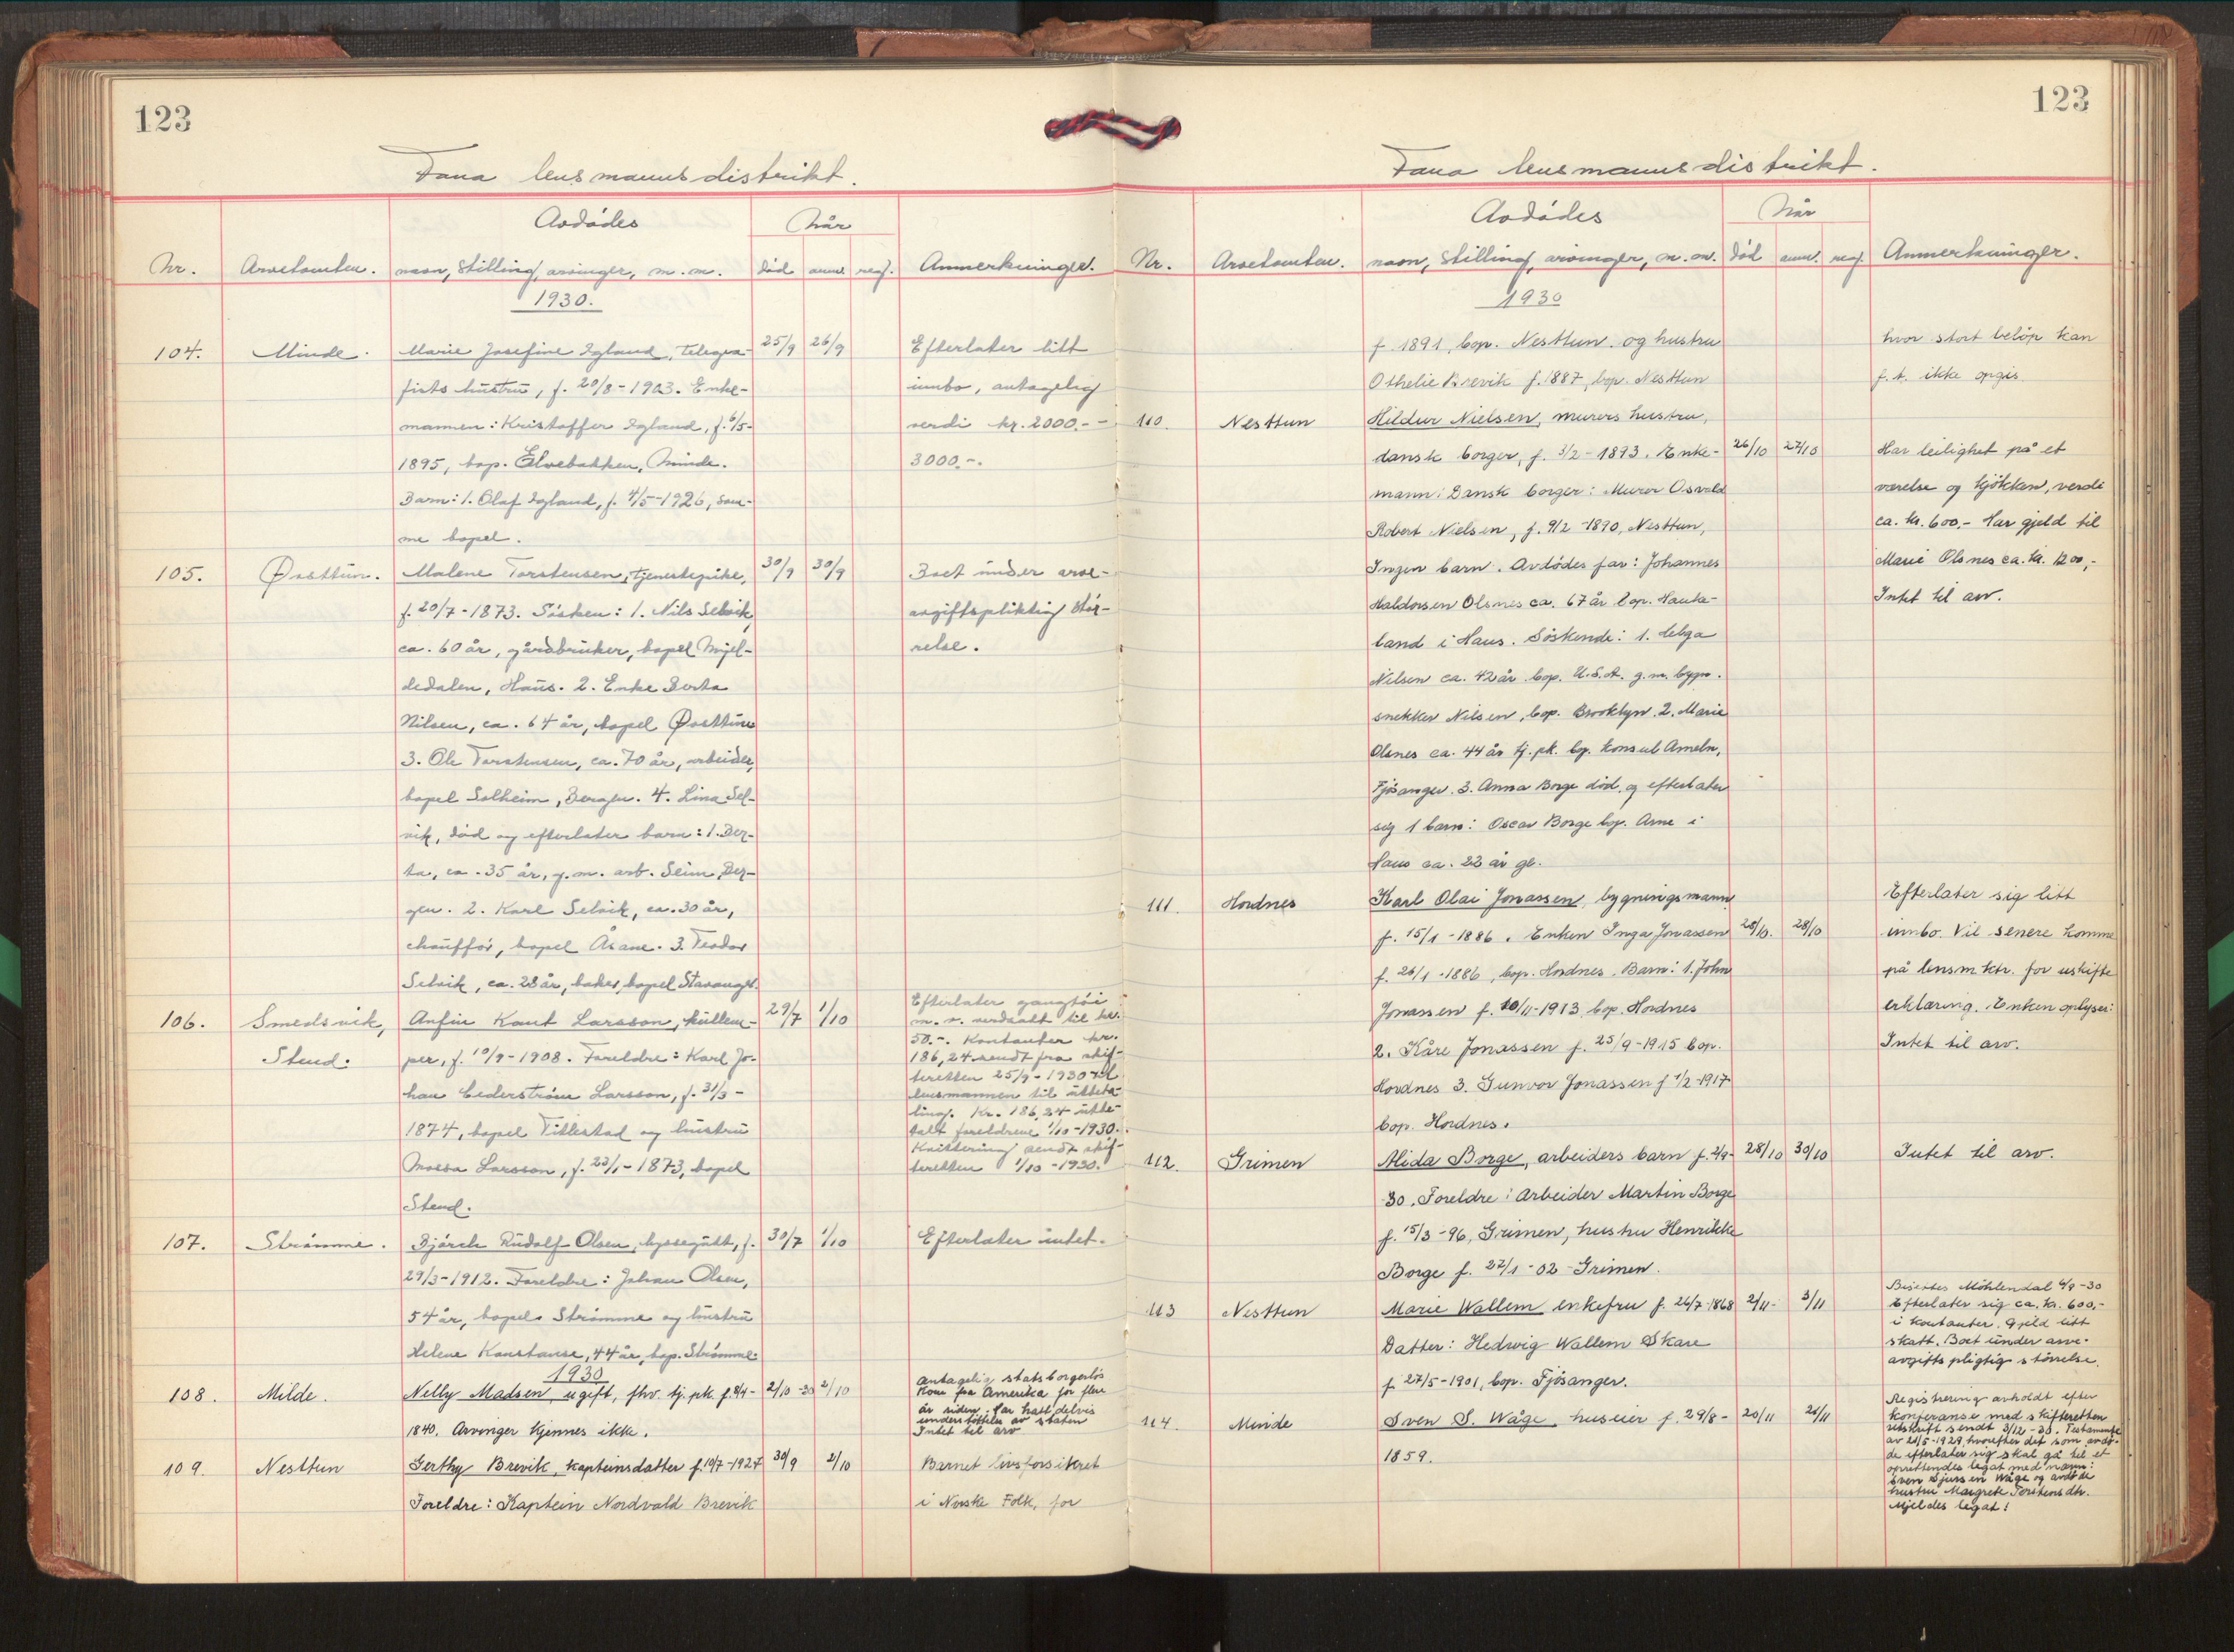 123
Fana lensmannsdistrikt.
Avdødes
Når
Nr.
Arvetomten.
navn, stilling, arvinger, m.m.
død
anm.
reg.
Anmerkninger.
1930.
104.
Minde.
Marie Josefine Igland, telegra-
25/9
26/9
Efterlater litt
fists hustru, f. 20/8-1903. Enke-
innbo, antagelig
mannen: Kristoffer Igland, f. 6/5-
verdi kr. 2000.- -
1895, bop. Elvebakken, Minde.
3000.-.
Barn: 1. Olaf Igland, f. 4/5-1926, sam-
me bopel.
105.
Øvsttun.
Malene Torstensen, tjenestepike,
30/9
30/9
Boet under arve-
f. 20/7-1873. Søsken: 1. Nils Selvik,
avgiftspliktig stør-
ca. 60 år, gårdbruker, bopel Mjel-
relse.
dedalen, Haus. 2. Enke Berta
Nilsen, ca. 64 år, bopel Øvsttun
3. Ole Torstensen, ca. 70 år, arbeider,
bopel Solheim, Bergen. 4. Lina Sel-
vik, død og efterlater barn: 1. Ber-
ta, ca. 35 år, g.m. arb. Seim, Ber-
gen. 2. Karl Selvik, ca. 30 år,
chauffør, bopel Åsane. 3. Teodor
Selvik, ca. 28 år, baker, bopel Stavanger.
106.
Smedsvik,
Anfin Knut Larsson, kullem-
29/7
1/10
Efterlater gangtøi
m.v. verdsatt til kr.
50.-. Kontanter kr.
Stend.
per, f. 10/9-1908. Foreldre: Karl Jo-
186,24 sendt fra skif-
teretten 25/9-1930 til
han Cederstrøm Larsson, f. 31/3-
lensmannen til utbeta-
ling. Kr. 186,24 utbe-
1874, bopel Tittestad og hustru
talt foreldrene 1/10-1930.
Kvittering sendt skif-
Mossa Larsson, f. 23/1-1873, bopel
teretten 1/10-1930.
Stend.
107.
Strømme.
Bjørch Rudolf Olsen, byssegutt, f.
30/7
1/10
Efterlater intet.
29/3-1912. Foreldre: Johan Olsen,
54 år, bopel Strømme og hustru
Helene Konstanse, 44 år, bop. Strømme.
1930
108.
Milde.
Nelly Madsen, ugift, fhv. tj. pk. f. 8/4-
2/10-30
2/10
antagelig statsborgerløs
Kom fra Amerika for flere
år siden. Har hatt delvis
1840. Arvinger kjennes ikke.
understøttelse av staten
Intet til arv
109.
Nesttun
Gerthy Brevik, kapteinsdatter f. 10/7-1927
30/9
2/10
Barnet livsforsikret
Foreldre: Kaptein Nordvald Brevik
i Norske Folk, for
123
Fana lensmannsdistrikt.
Avdødes
Når
Nr.
Arvetomten.
navn, stilling, arvinger, m.m.
død
anm.
reg.
Anmerkninger.
1930
f. 1891, bop. Nesttun. og hustru
hvor stort beløp kan
Othelie Brevik f. 1887, bop. Nesttun
f.t. ikke opgis.
110.
Nesttun
Hildur Nielsen, murers hustru,
dansk borger, f. 3/2-1893. Enke-
26/10
27/10
Har leilighet på et
mann: Dansk borger: Murer Osvald
værelse og kjøkken, verdi
Robert Nielsen, f. 9/2-1890, Nesttun,
ca. kr. 600.- Har gjeld til
Ingen barn. Avdødes far: Johannes
Marie Olsnes ca. kr. 1200,-
Haldorsen Olsnes ca. 67 år bop. Hauke-
Intet til arv.
land i Haus. Søskende: 1. Helga
Nilsen ca. 42 år bop. U.S.A. g.m. bygn.
snekker Nilsen, bop. Brooklyn. 2. Marie
Olsnes ca. 44 år tj. pk. bop. konsul Ameln,
Fjøsanger. 3. Anna Borge død, og efterlater
sig 1 barn: Oscar Borge bop. Arne i
Haus ca. 23 år gl.
111.
Hordnes
Karl Olai Jonassen, bygningsmann
Efterlater sig litt
f. 15/1-1886. Enken Inga Jonassen
28/10.
28/10
innbo. Vil senere komme
f. 26/1-1886, bop. Hordnes. Barn: 1. John
på lensm. ktr. for uskifte
Jonassen f. 10/11-1913, bop. Hordnes
erklæring. Enken oplyser:
2. Kåre Jonassen f. 25/9-1915 bop.
Intet til arv.
Hordnes 3. Gunvor Jonassen f 1/2-1917
bop. Hordnes.
112.
Grimen
Alida Borge, arbeiders barn f. 2/9-
28/10
30/10
Intet til arv.
30. Foreldre: Arbeider Martin Borge
f. 15/3-96, Grimen, hustru Henrikke
Borge f. 22/1-02 Grimen.
113
Nesttun
Marie Wallem enkefru f. 26/7-1868
2/11-
3/11
Bisettes Møhlendal 6/9-30
Efterlater sig ca. kr. 600,-
i kontanter. Gjeld litt
Datter: Hedwig Wallem Skare
skatt. Boet under arve-
avgifts pligtig størrelse.
f. 27/5-1901, bop. Fjøsanger.
114.
Minde
Sven S. Wåge, huseier f. 29/8-
20/11
21/11
Registrering avholdt efter
konferanse med skifteretten
utskrift sendt 3/12-30. Testamente
av 21/5-1929, hvorefter det som avdø-
1859.
de efterlater sig skal gå til et
oprettendes legat med navn:
Sven Sjursen Wåge og avdøde
hustru Margrete Torstensdtr.
Mjeldes legat!